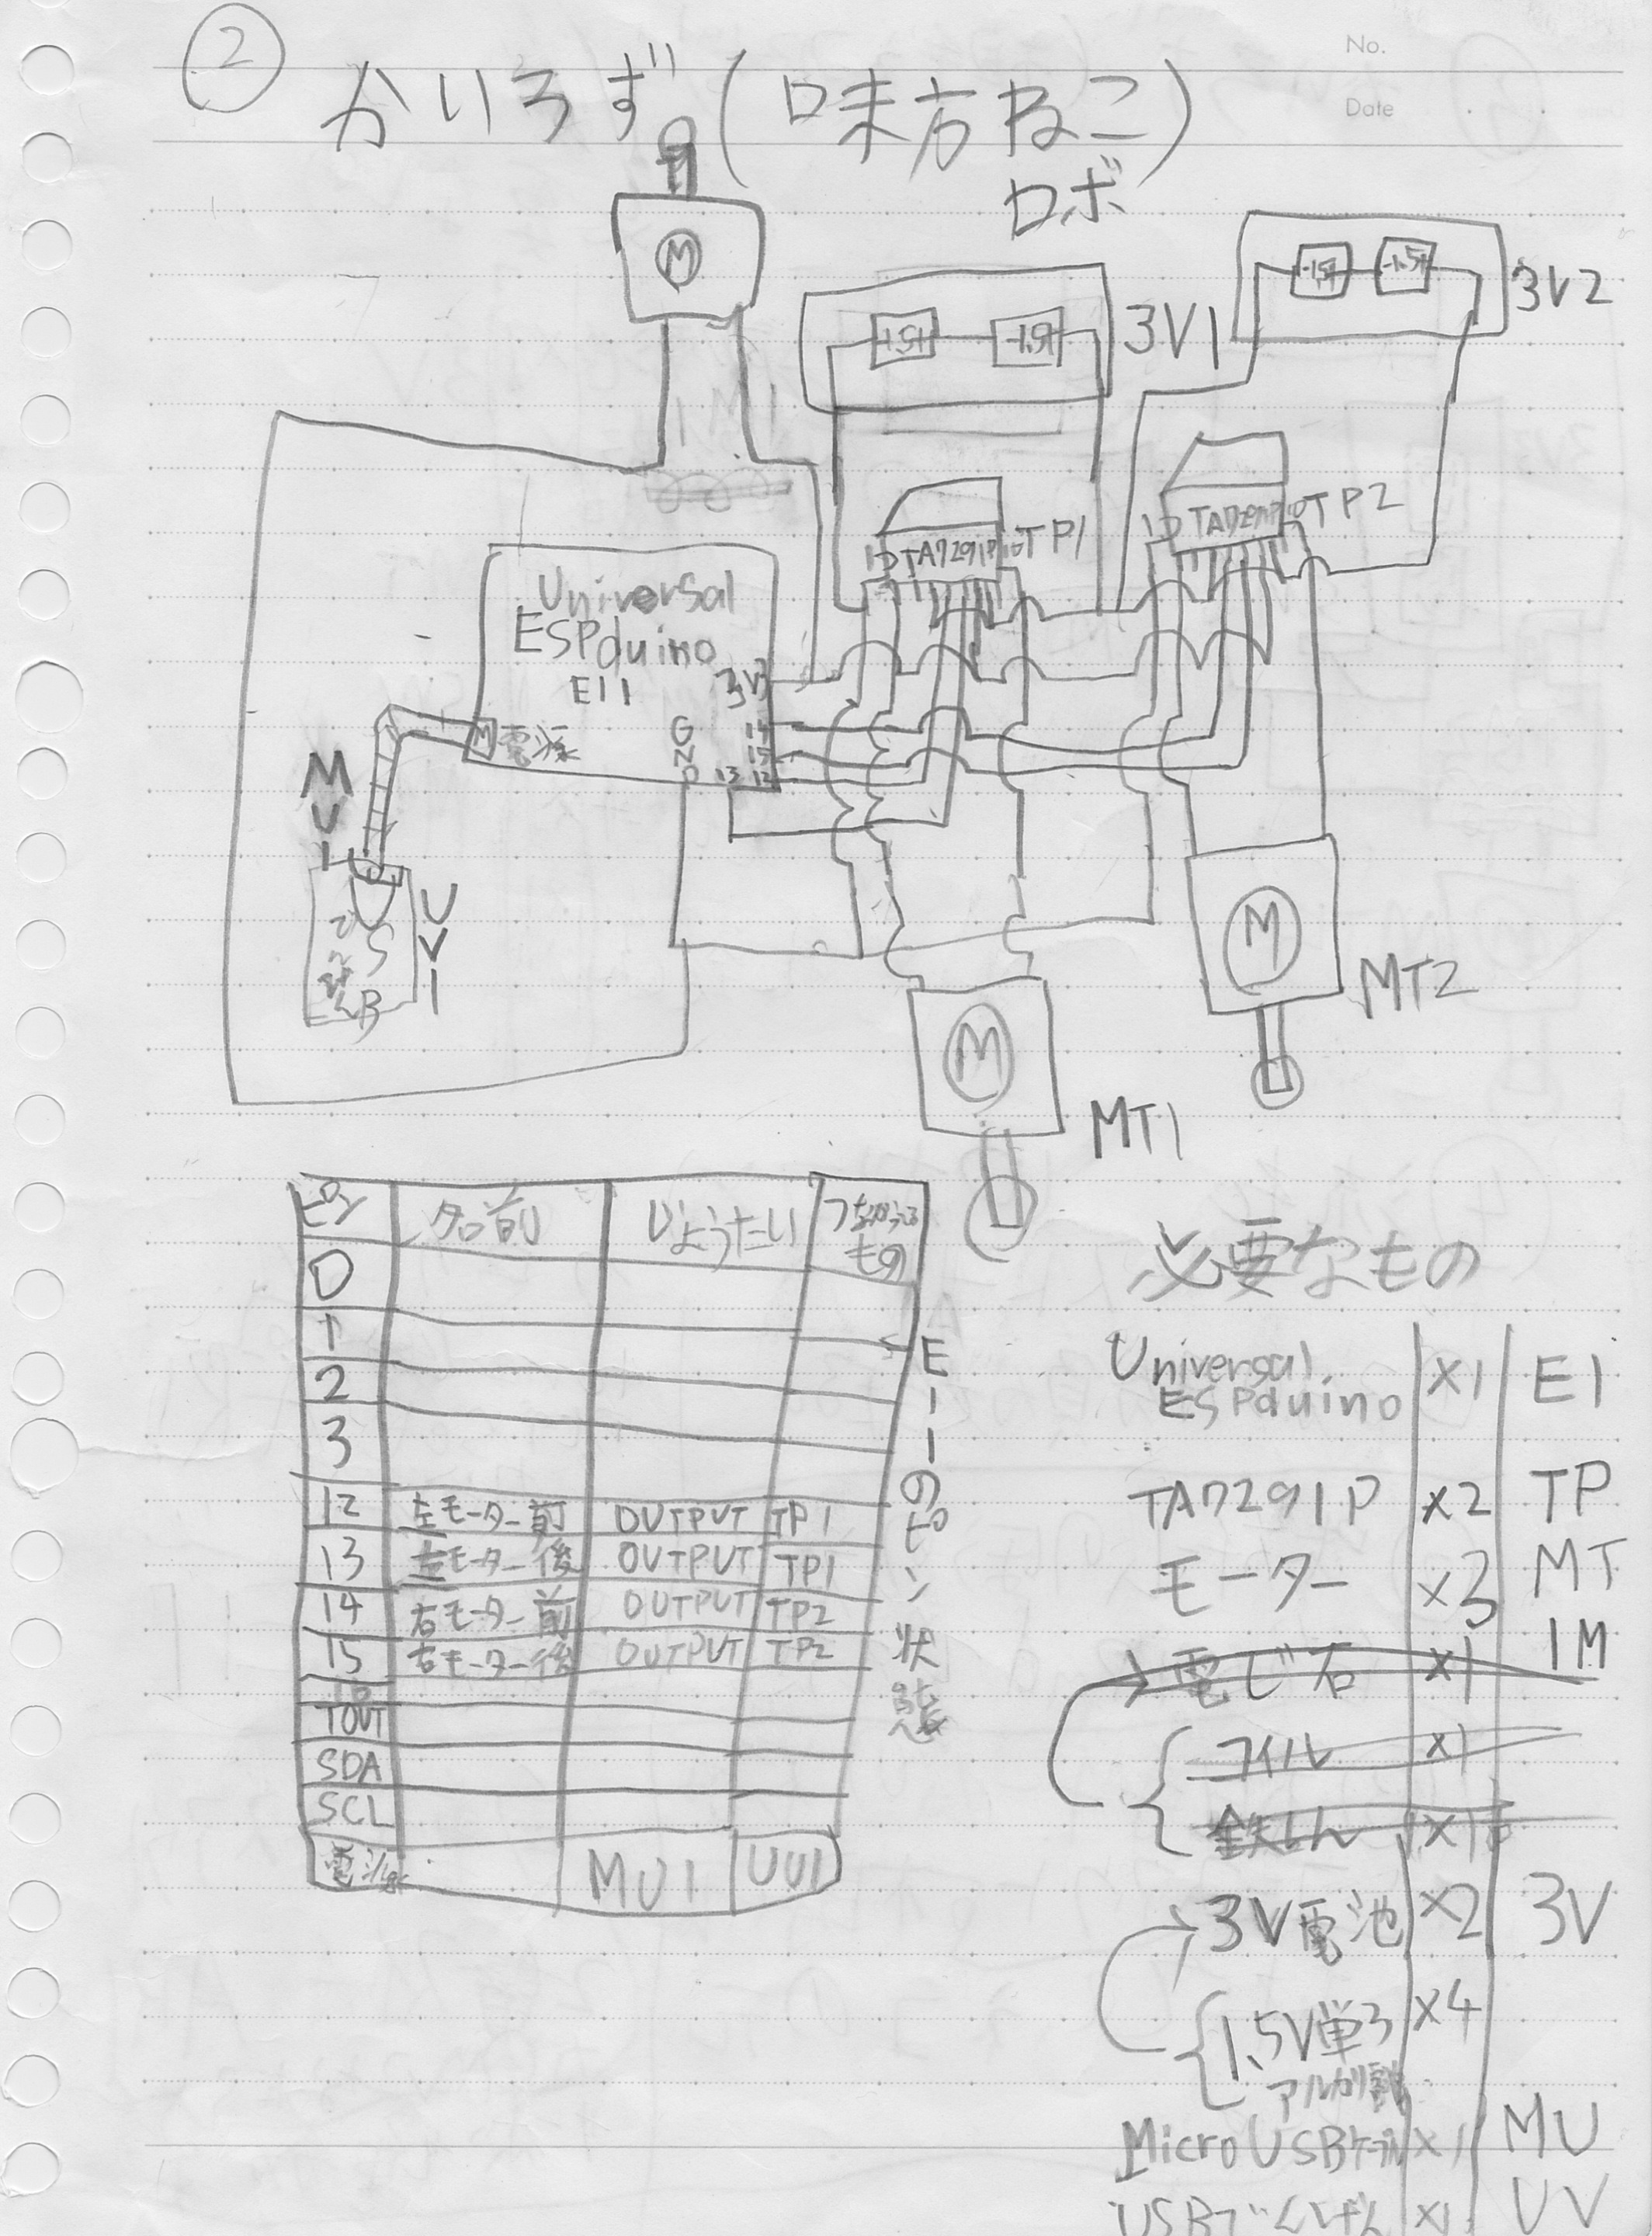 ②
かいろず(味方ねこ)
ロボ
No.
Date
M
3V1
3V2
TA7291P
TP1
TP2
Universal
ESPduino
E11
3V3
電源
GND
14
15
13
12
MU1
UV1
USB
M
M
MT2
MT1
ピン 名前 じょうたい つながってるもの
0
1
2
3
12 左モーター前 OUTPUT TP1
13 左モーター後 OUTPUT TP1
14 右モーター前 OUTPUT TP2
15 右モーター後 OUTPUT TP2
16
TOUT
SDA
SCL
電源 MU1 UV1
E11のピン状態
必要なもの
Universal
ESPduino ×1 E1
TA7291P ×2 TP
モーター ×3 MT
電じ石 ×1 1M
コイル ×1
鉄しん ×1
3V電池 ×2 3V
1.5V単3 ×4
アルカリ
MicroUSBケーブル ×1 MU
USBでんげん ×1 UV